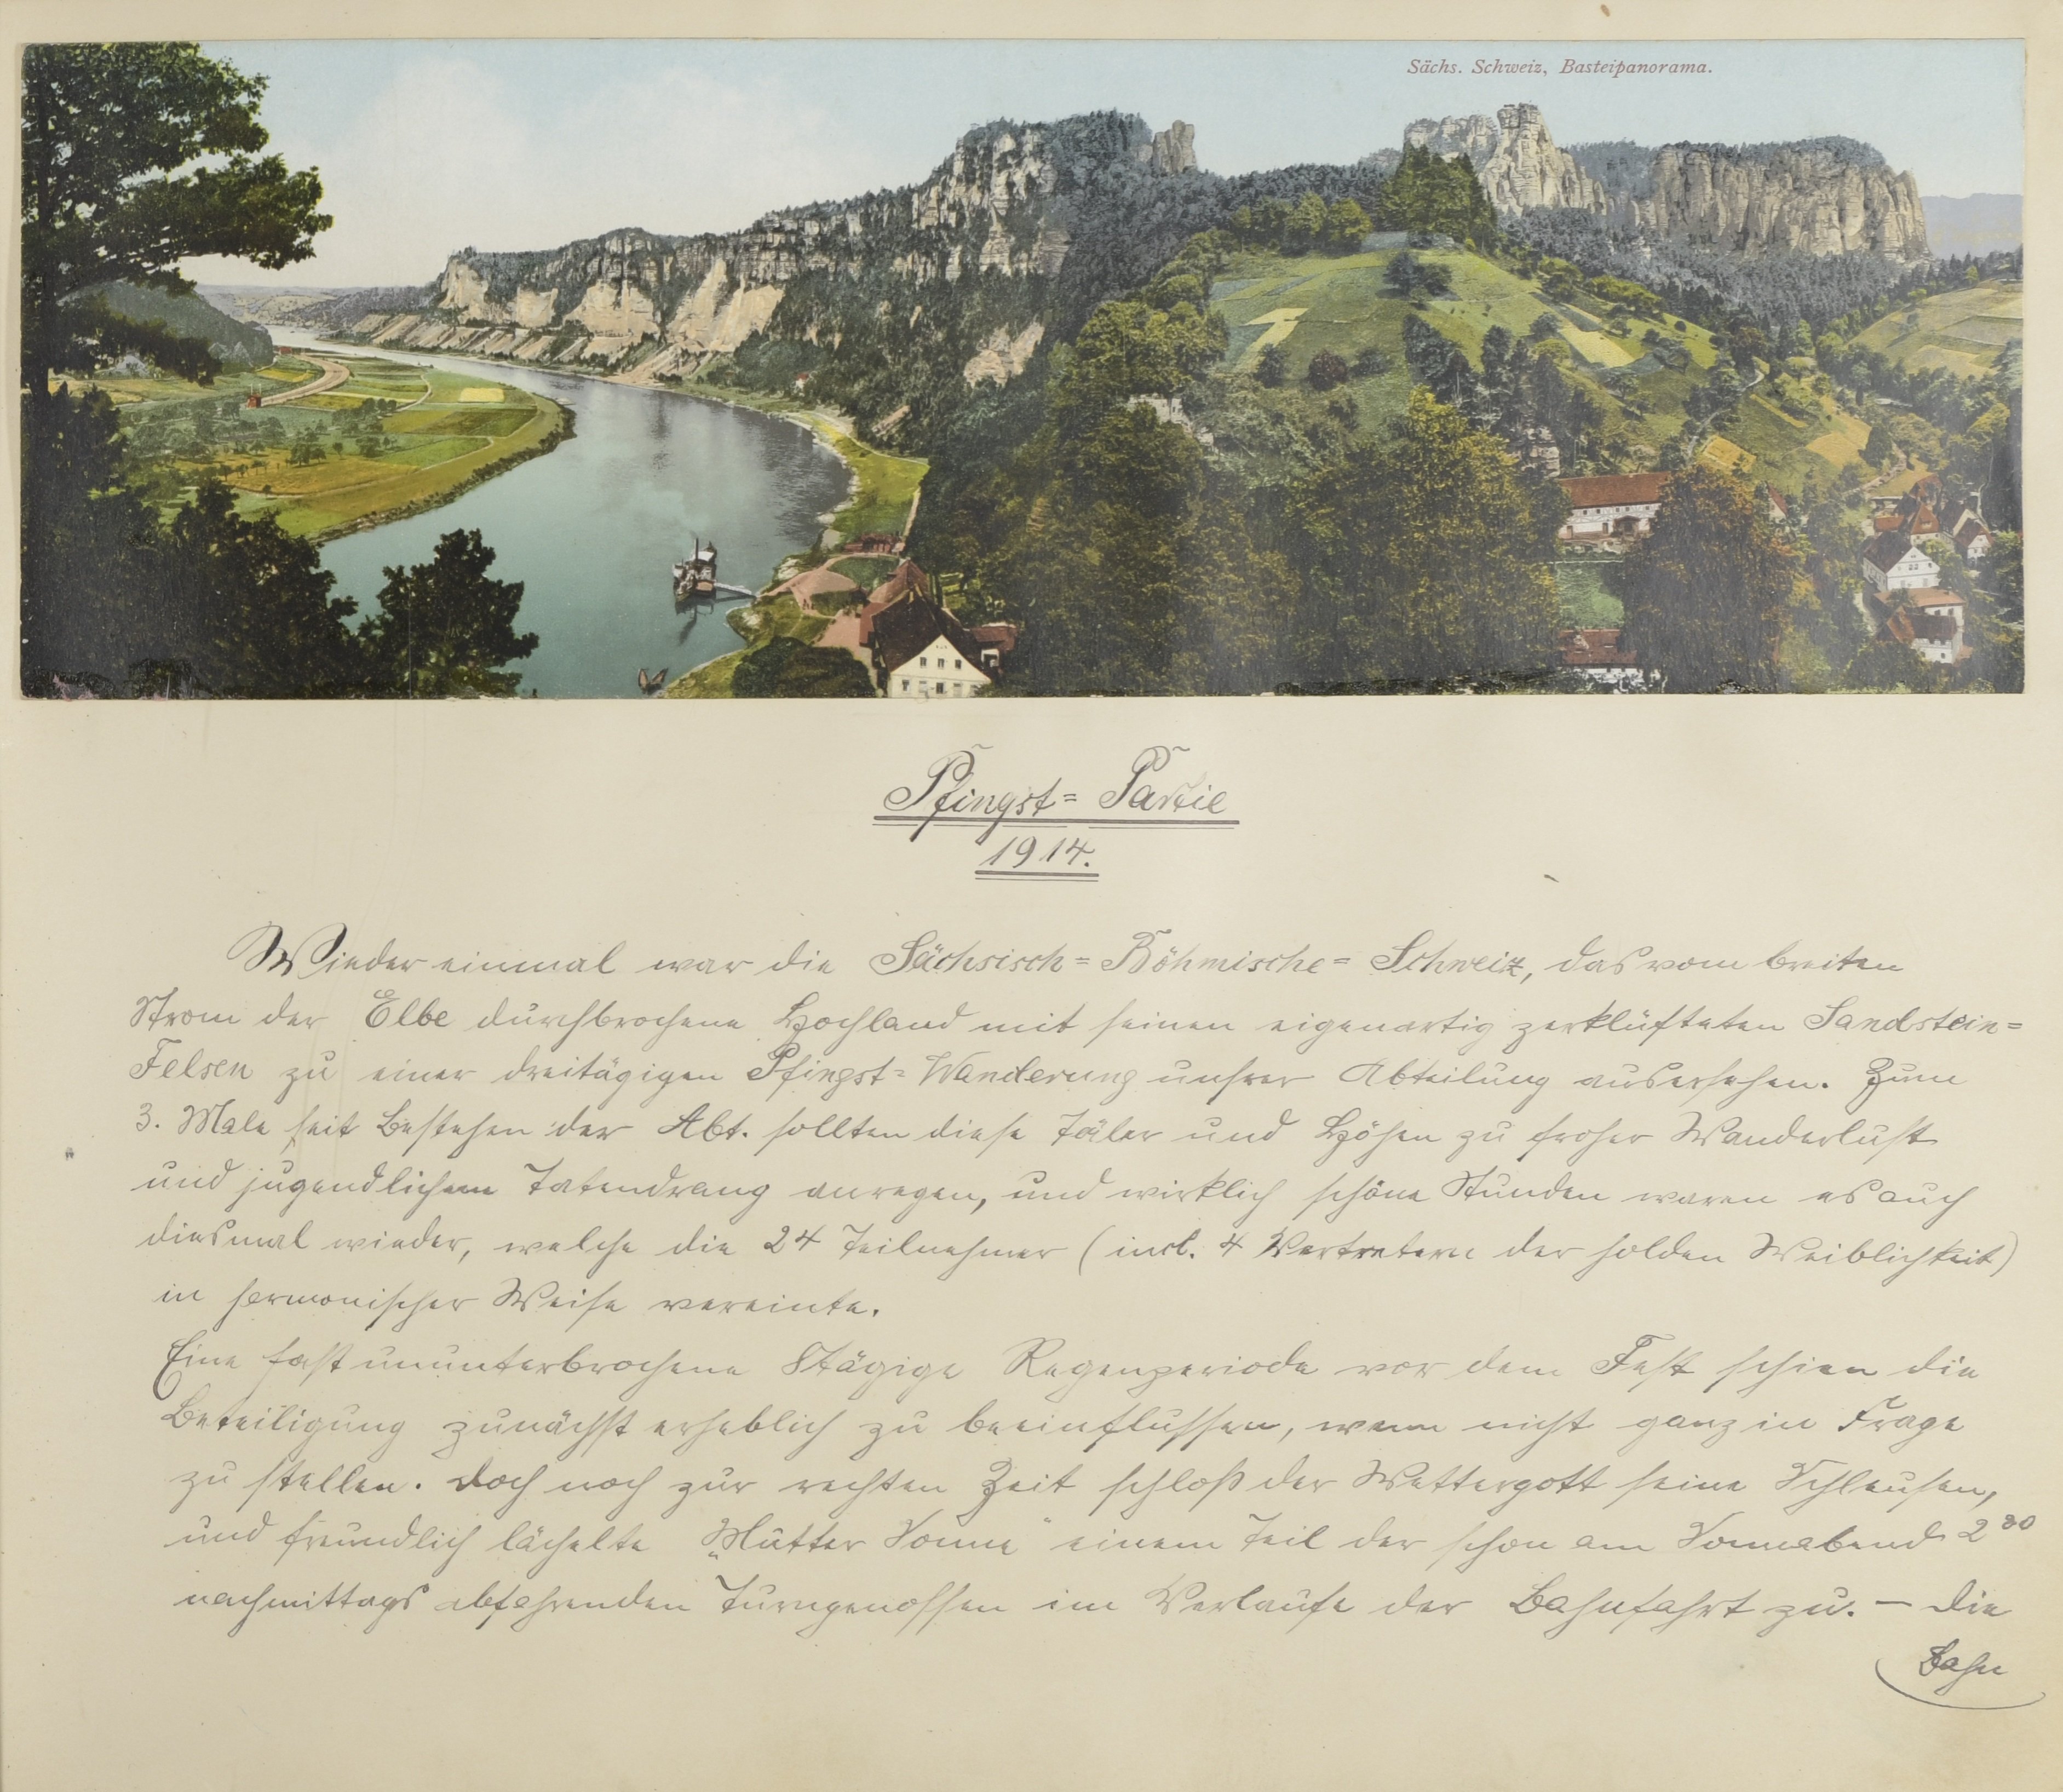 Sächs. Schweiz, Basteipanorama.
Pfingst= Partie
1914.
Wieder einmal war die Sächsisch=Böhmische=Schweiz, das vom breiten
Strom der Elbe durchbrochene Hochland mit seinen eigenartig zerklüfteten Sandstein=
Felsen zu einer dreitägigen Pfingst=Wanderung unsrer Abteilung ausersehen. Zum
3. Male seit Bestehen der Abt. sollten diese Täler und Höhen zu froher Wanderlust
und jugendlichem Tatendrang anregen, und wirklich schöne Stunden waren es auch
diesmal wieder, welche die 24 Teilnehmer (incl. 4 Vertretern der holden Weiblichkeit)
in harmonischer Weise vereinte.
Eine fast ununterbrochene 8tägige Regenperiode vor dem Fest schien die
Beteiligung zunächst erheblich zu beeinflussen, wenn nicht ganz in Frage
zu stellen. Doch noch zur rechten Zeit schloß der Wettergott seine Schleusen,
und freundlich lächelte „Mutter Sonne“ einem Teil der schon am Sonnabend 2³⁰
nachmittags abfahrenden Turngenossen im Verlaufe der Bahnfahrt zu. — Die
Bahn